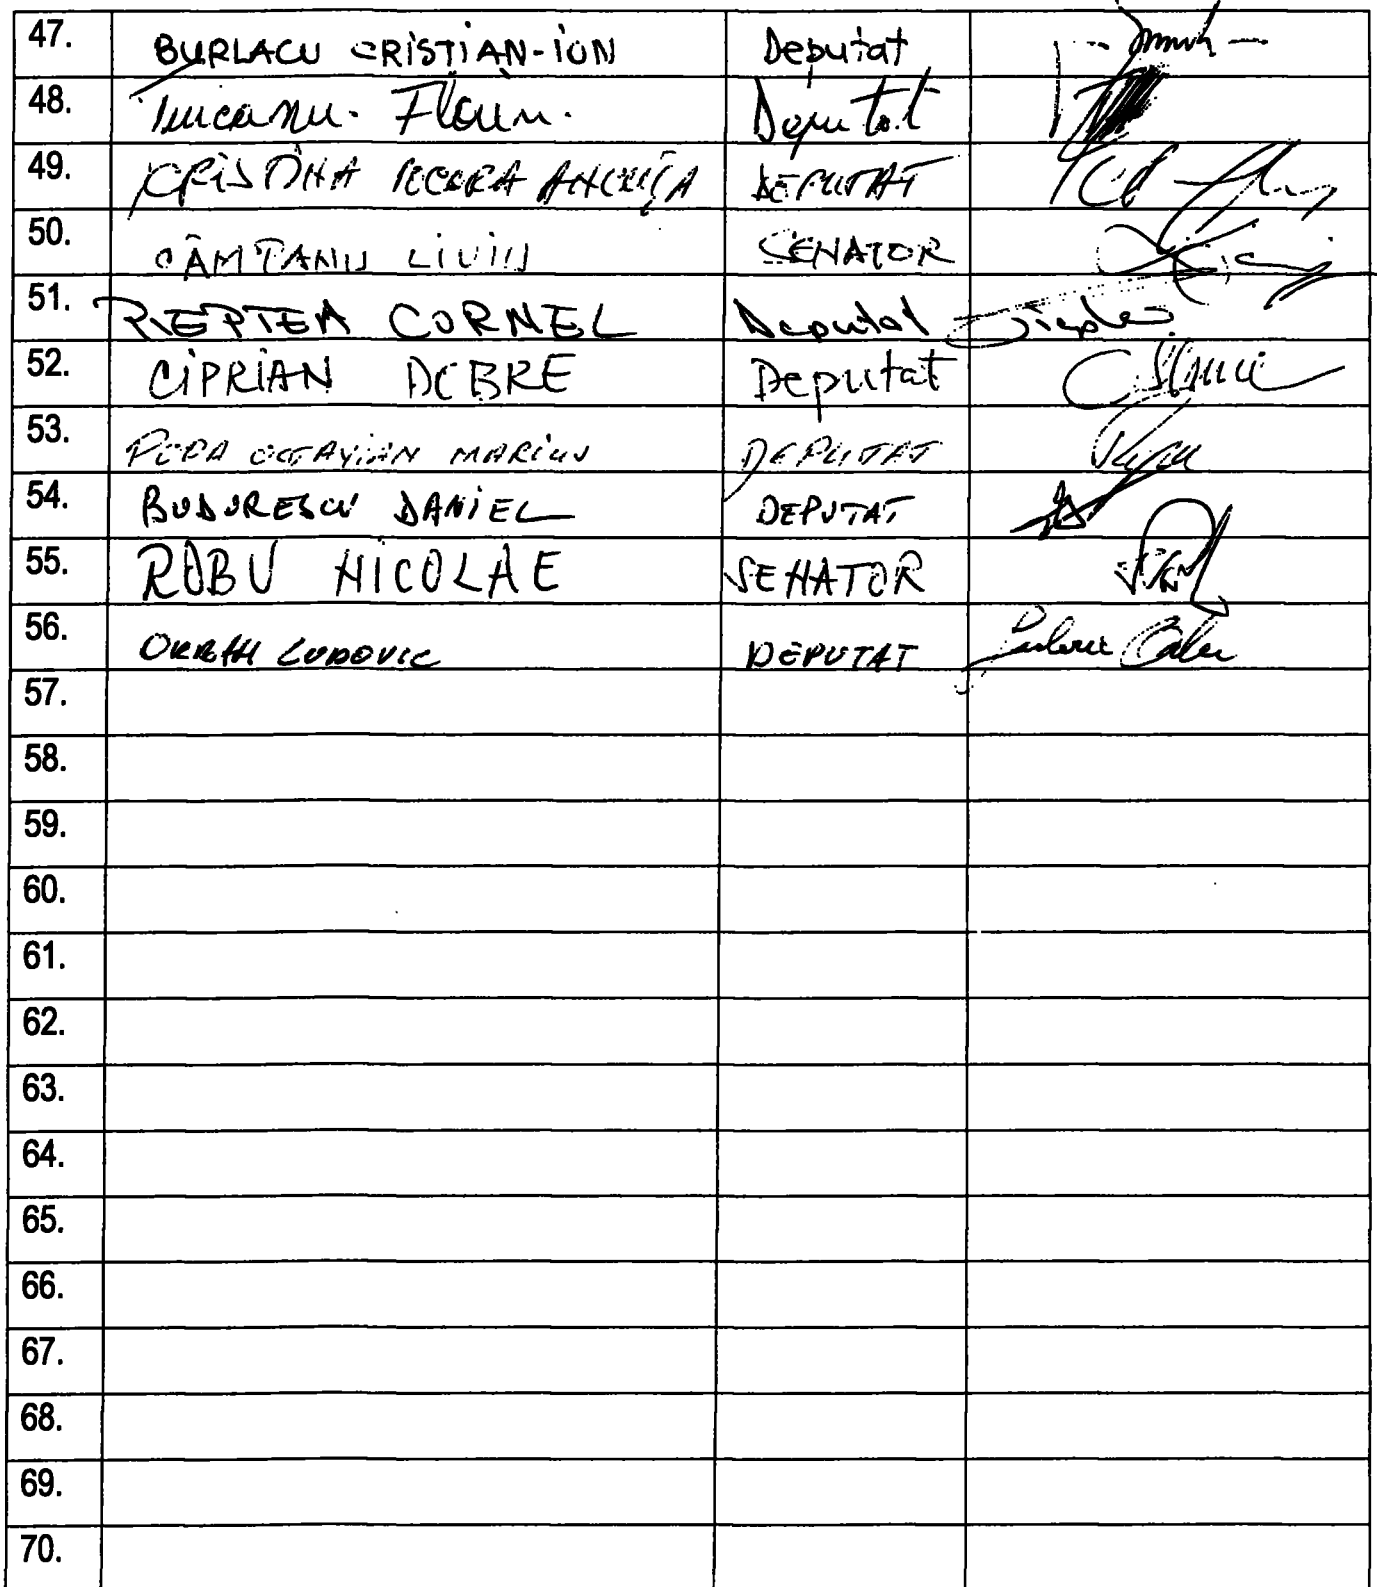 47. BURLACU CRISTIAN-ION Deputat
48. Turcanu Florin. Deputat
49. CRISTINA ANCUȚA DEPUTAT
50. LIVIU SENATOR
51. CORNEL Deputat
52. CIPRIAN DOBRE Deputat
53. POPA OCTAVIAN MARIUS DEPUTAT
54. BUDURESCU DANIEL DEPUTAT
55. ROBU NICOLAE SENATOR
56. ORBAN LUDOVIC DEPUTAT
57.
58.
59.
60.
61.
62.
63.
64.
65.
66.
67.
68.
69.
70.